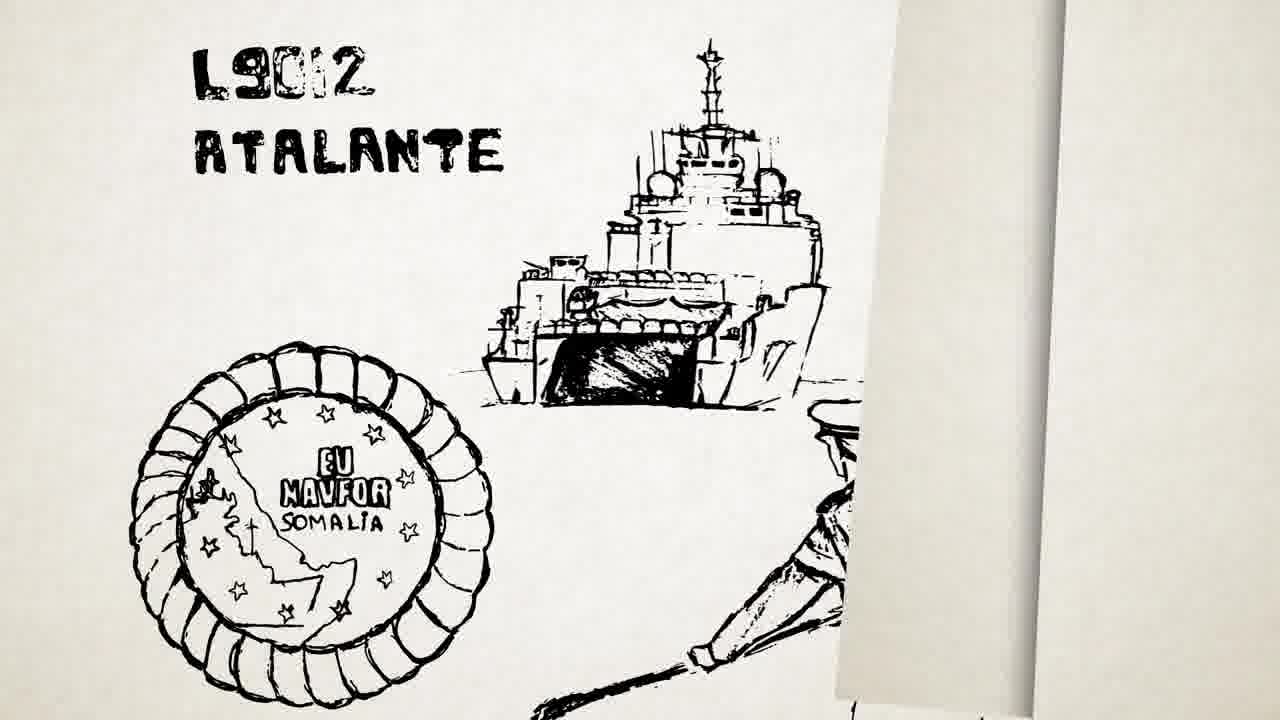 L9012
ATALANTE
EU
NAVFOR
SOMALIA